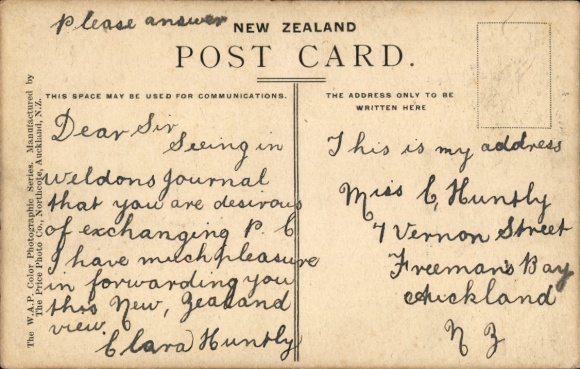 Please answer
NEW ZEALAND
POST CARD.
THIS SPACE MAY BE USED FOR COMMUNICATIONS.
THE ADDRESS ONLY TO BE
WRITTEN HERE
The W.A.P. Color Photographic Series. Manufactured by
The Price Photo Co., Northcote, Auckland, N.Z.
Dear Sir
Seeing in
Weldons Journal
that you are desirous
of exchanging P. C
I have much pleasure
in forwarding you
this New, Zealand
view.
Clara Huntly
This is my address
Miss C, Huntly
7 Vernon Street
Freeman's Bay
Auckland
N Z